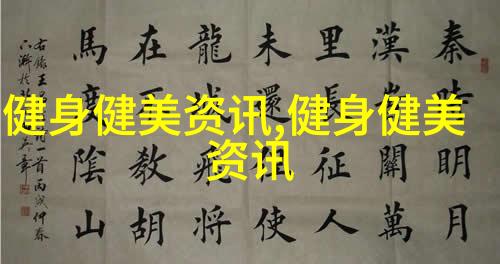 健身健美资讯,健身健美
资讯
秦時明月
漢關萬
里長征人
未還使
龍城飛將
在不教胡
馬度陰山
一首丙戌仲春